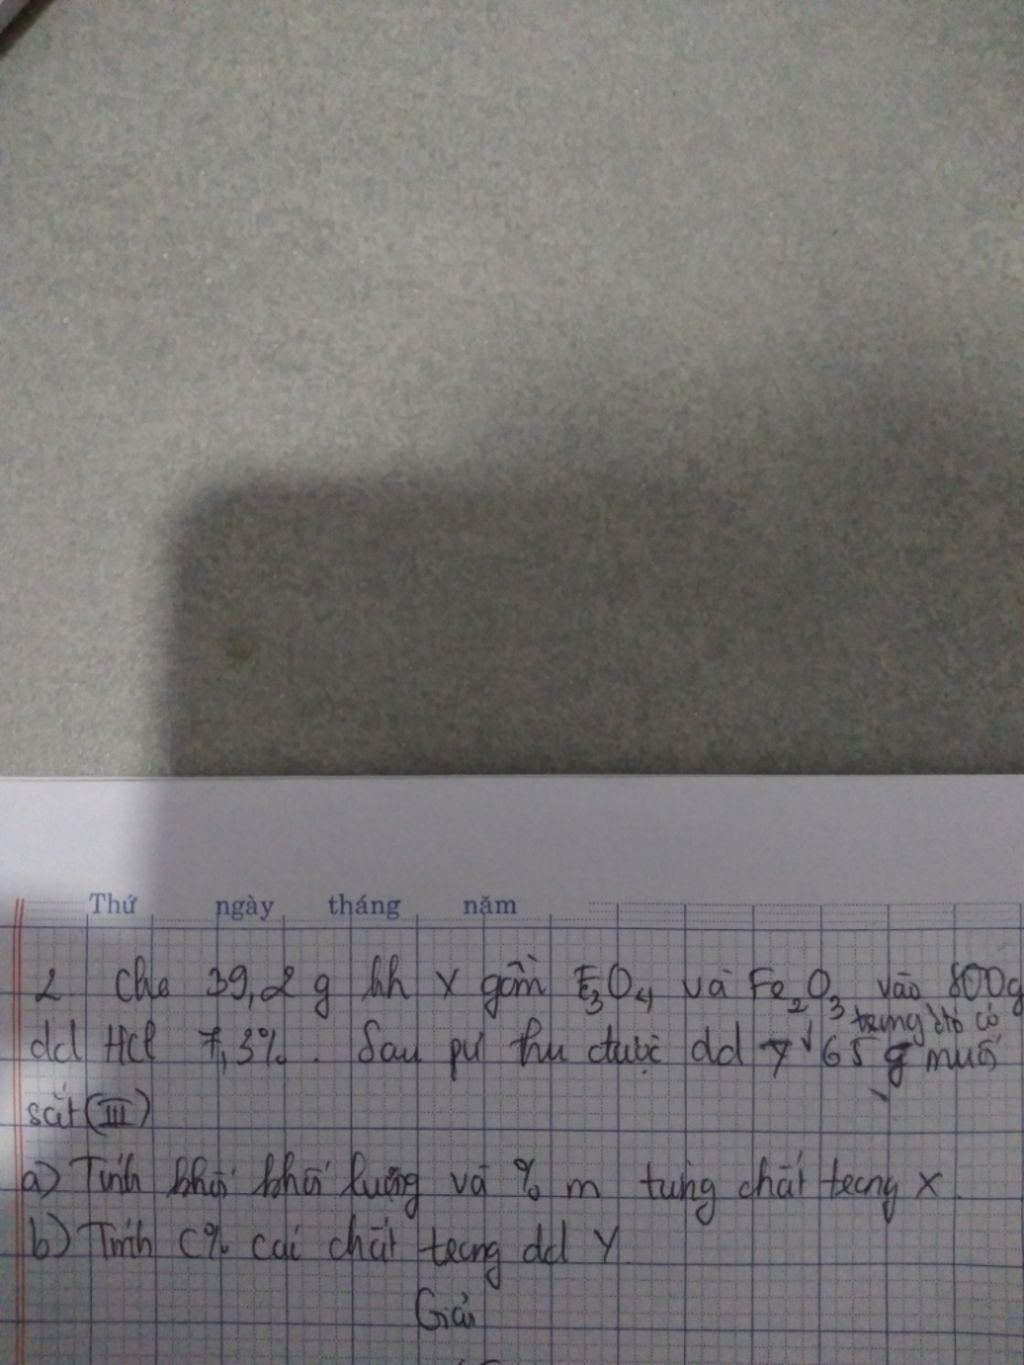 Thứ ngày tháng năm
2 Cho 39,2 g hh X gồm Fe3O4 và Fe2O3 vào 800g
dd HCl 7,3%. Sau pứ thu được dd Y trong đó có 65 g muối
sắt (III)
a) Tính khối khối lượng và % m từng chất trong X
b) Tính C% các chất trong dd Y
Giải